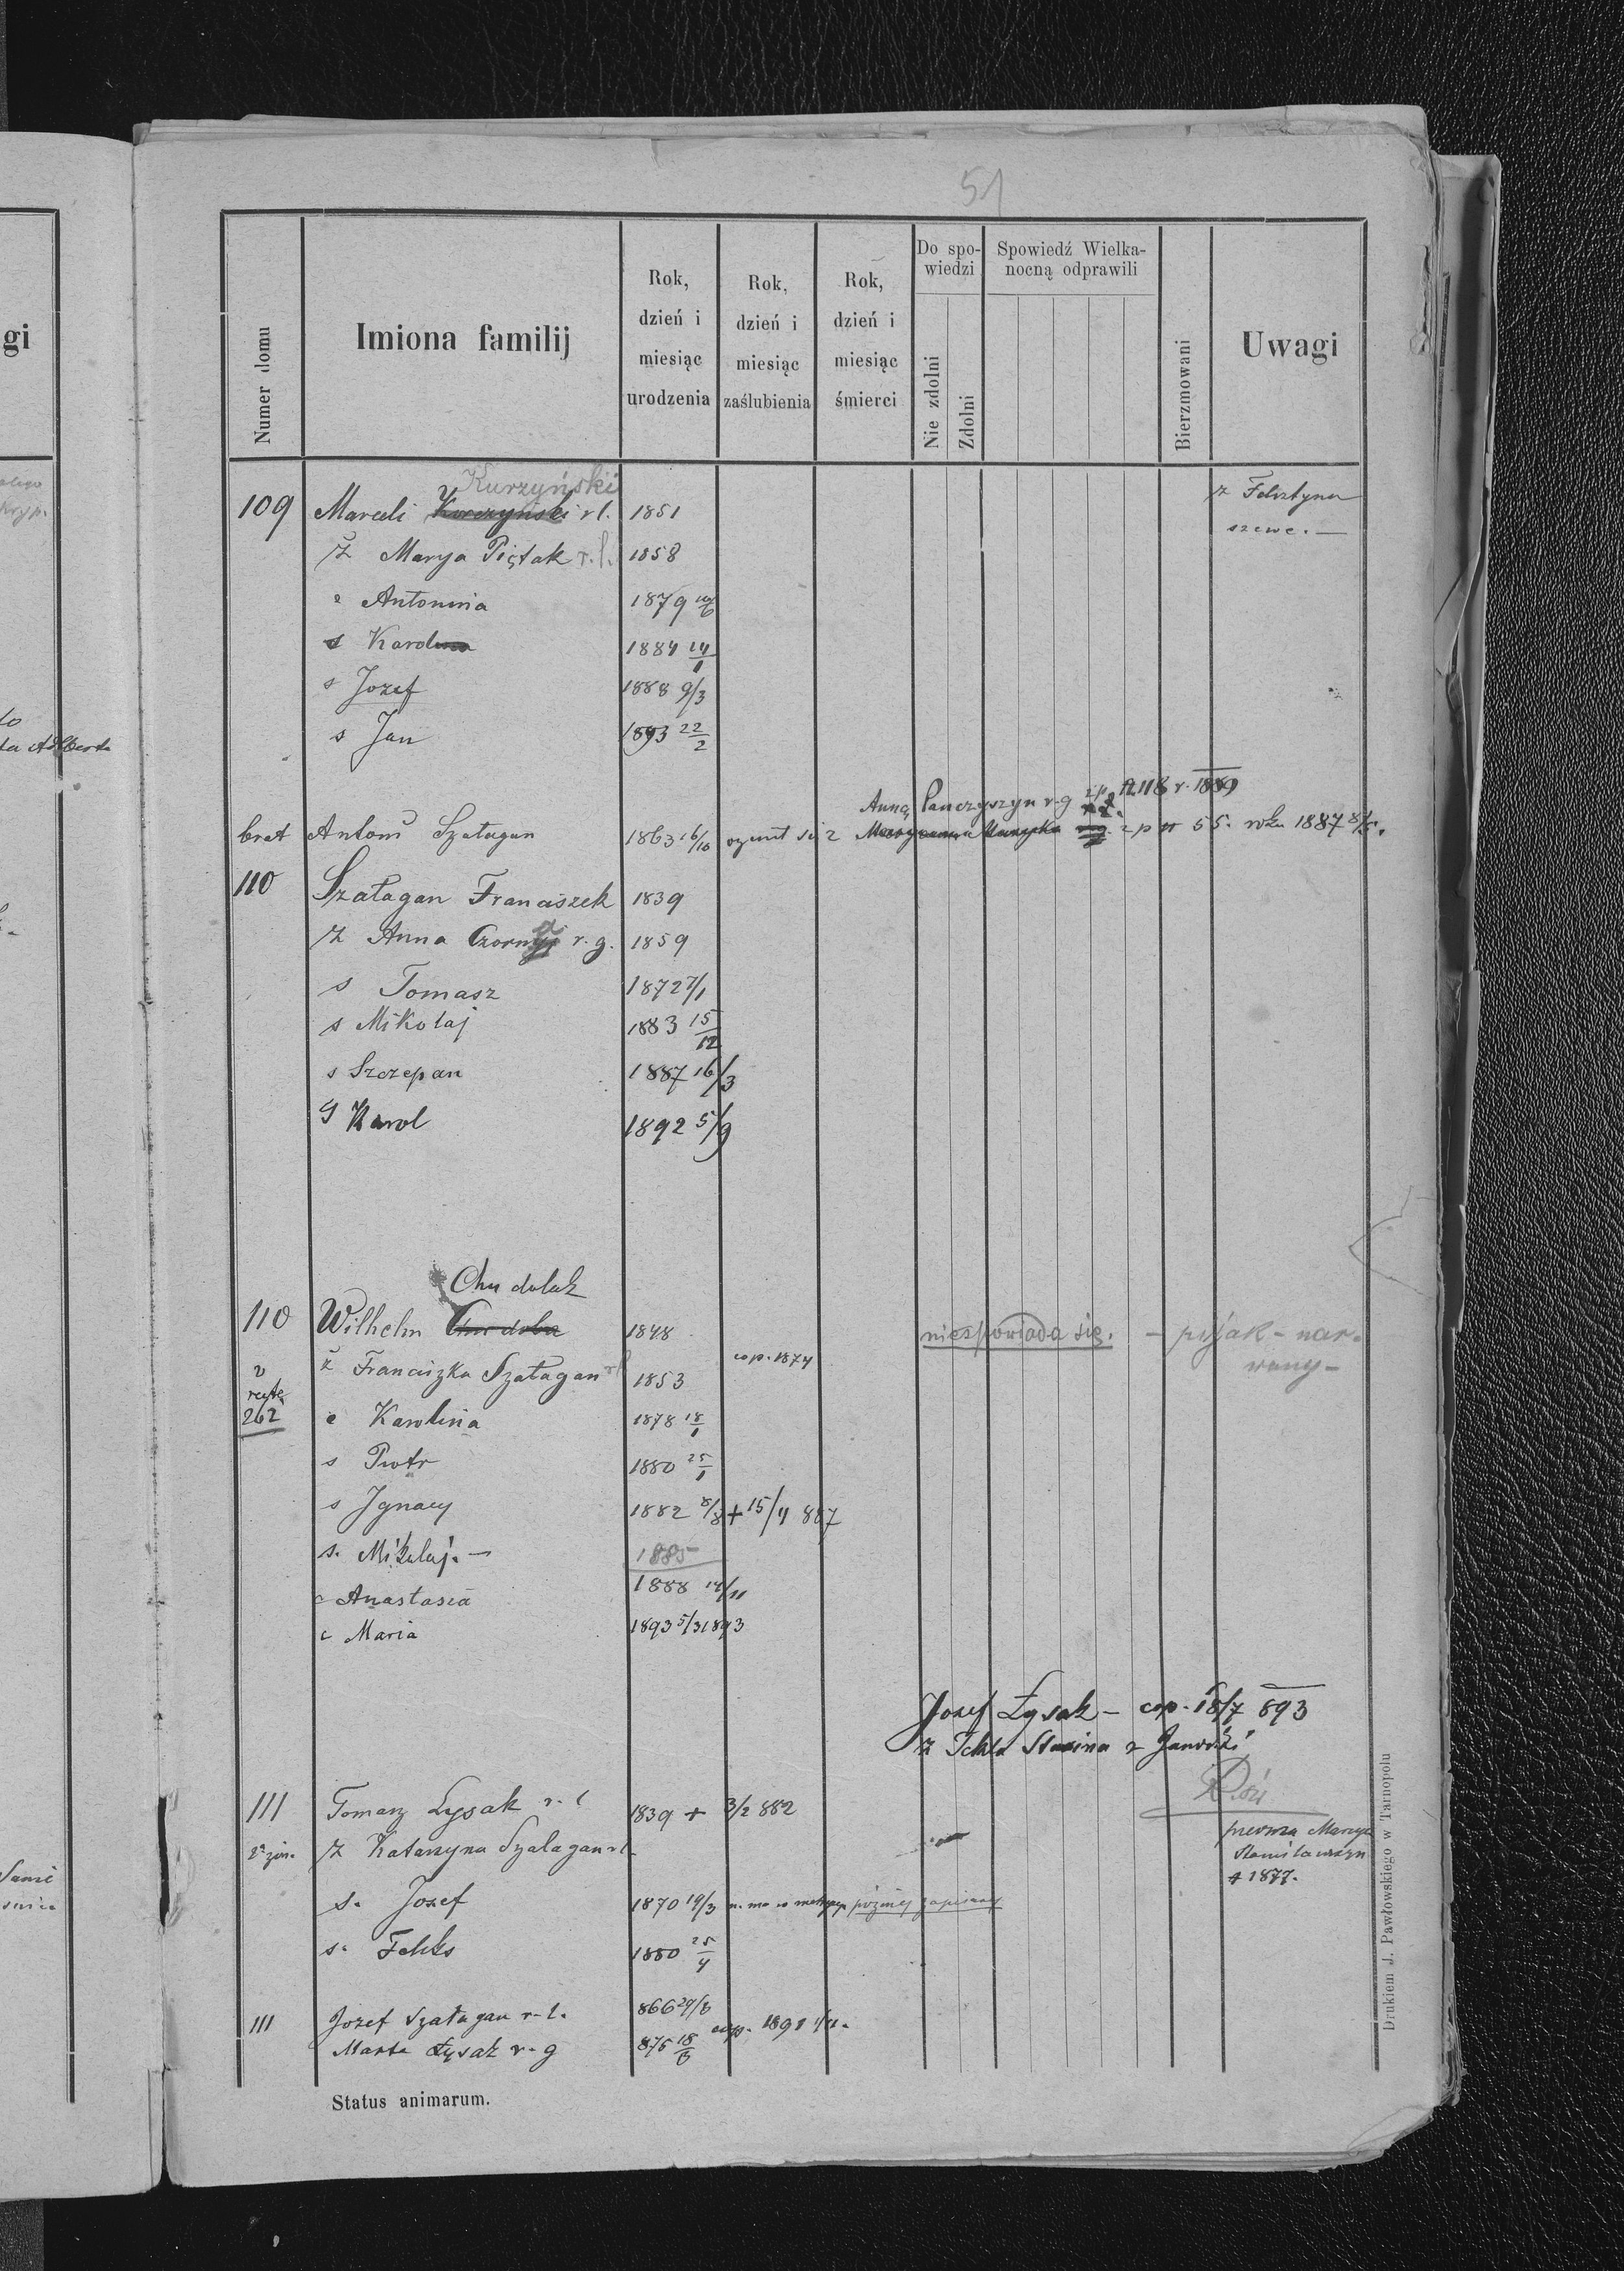 51
Numer domu
Imiona familij
Rok, dzień i miesiąc urodzenia
Rok, dzień i miesiąc zaślubienia
Rok, dzień i miesiąc śmierci
Do spowiedzi
Nie zdolni
Zdolni
Spowiedź Wielkanocną odprawili
Bierzmowani
Uwagi
gi
Kurzyński
109 Marceli Korczyński r l. 1851 z Felsztyna
szewc. —
ż Marya Piętak r. l. 1858
c Antonina 1879
s Karol 1884 14/1
s Jozef 1888 9/3
s Jan 1893 22/2
Anną Panczyszyn r g z p 118 r. 1889
brat Antoni Szałagan 1863 16/10 ożenił się z z p N 55. roku 1887
110 Szałagan Franciszek 1839
ż Anna Czorna r. g. 1859
s Tomasz 1872 7/1
s Mikołaj 1883 15/12
s Szczepan 1887 16/3
S Karol 1892 5/9
Chudolak
110 Wilhelm Chudoba 1848 niespowiada się. — pijak - nar-
wany -
ż Franciszka Szałagan rl 1853 cop. 1874
262 c Karolina 1878 18/1
s Piotr 1880 25/1
s Ignacy 1882 8/8 + 15/4 887
s. Mikołaj. — 1885
c Anastasia 1888 14/11
c Maria 1893 5/3 1893
Jozef Łysak - cop. 18/7 893
z Tekla z Janówki
111 Tomasz Łysak r. l 1839 + 3/2 882
pierwsza Marya
+ 1877.
2 żon. ż Katarzyna Szałagan r l
s. Jozef 1870 19/3 n. ma w metryce później zapisany
s. Feliks 1880 25/4
111 Jozef Szałagan r. l. 866 29/8 cop. 1891
Marta Łysak r. g 875 18/8
Status animarum.
Drukiem J. Pawłowskiego w Tarnopolu